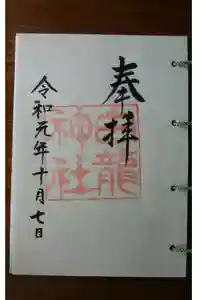 奉拝
龍神社
令和元年十月七日